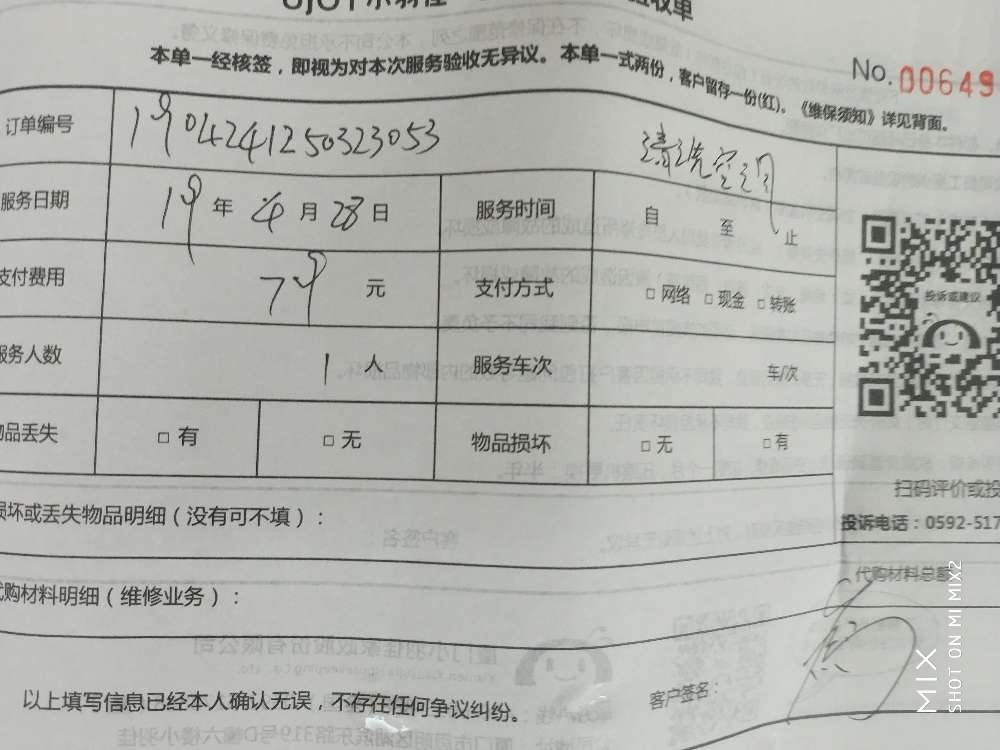 本单一经核签，即视为对本次服务验收无异议。本单一式两份，客户留存一份(红)。《维保须知》详见背面。
No.00649
订单编号 1904241250323053 清洗空调
服务日期 19年 4月 28日 服务时间 自 至 止
支付费用 79 元 支付方式 □网络 □现金 □转账
服务人数 1 人 服务车次 车/次
物品丢失 □有 □无 物品损坏 □无 □有
投诉或建议
扫码评价或投
损坏或丢失物品明细（没有可不填）：
投诉电话：0592-517
代购材料总额
代购材料明细（维修业务）：
客户签名：
以上填写信息已经本人确认无误，不存在任何争议纠纷。
MIX
SHOT ON MI MIX2